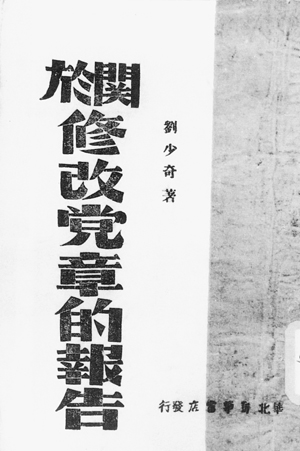 関於修改党章的報告
劉少奇著
華北新華書店發行